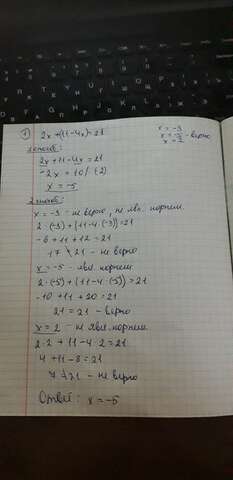 1) 2x + (11-4x) = 21
x = -3
x = -5 - верно
x = 2
1 способ:
2x + 11 - 4x = 21
-2x = 10 / (-2)
x = -5
2 способ:
x = -3 - не верно, не явл. корнем
2·(-3) + (11-4·(-3)) = 21
-6 + 11 + 12 = 21
17 ≠ 21 - не верно
x = -5 - явл. корнем
2·(-5) + (11-4·(-5)) = 21
-10 + 11 + 20 = 21
21 = 21 - верно
x = 2 - не явл. корнем
2·2 + 11 - 4·2 = 21
4 + 11 - 8 = 21
7 ≠ 21 - не верно
Ответ: x = -5